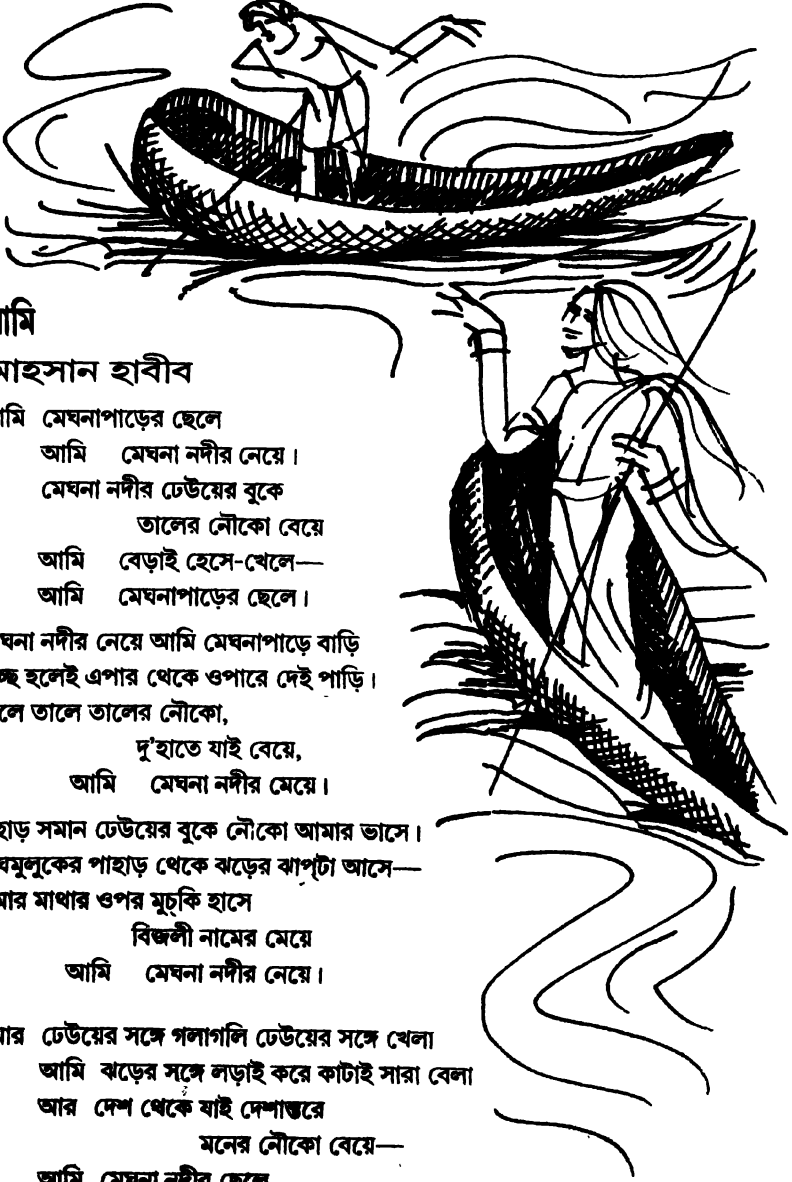 আমি
আহসান হাবীব
আমি মেঘনাপাড়ের ছেলে
আমি মেঘনা নদীর নেয়ে।
মেঘনা নদীর ঢেউয়ের বুকে
তালের নৌকো বেয়ে
আমি বেড়াই হেসে-খেলে—
আমি মেঘনাপাড়ের ছেলে।
মেঘনা নদীর নেয়ে আমি মেঘনাপাড়ে বাড়ি
ইচ্ছে হলেই এপার থেকে ওপারে দেই পাড়ি।
তালে তালে তালের নৌকো,
দু'হাতে যাই বেয়ে,
আমি মেঘনা নদীর মেয়ে।
পাহাড় সমান ঢেউয়ের বুকে নৌকো আমার ভাসে।
মেঘমুলুকের পাহাড় থেকে ঝড়ের ঝাপ্‌টা আসে—
আমার মাথার ওপর মুচ্‌কি হাসে
বিজলী নামের মেয়ে
আমি মেঘনা নদীর নেয়ে।
আমার ঢেউয়ের সঙ্গে গলাগলি ঢেউয়ের সঙ্গে খেলা
আমি ঝড়ের সঙ্গে লড়াই করে কাটাই সারা বেলা
আর দেশ থেকে যাই দেশান্তরে
মনের নৌকো বেয়ে—
আমি মেঘনা নদীর ছেলে